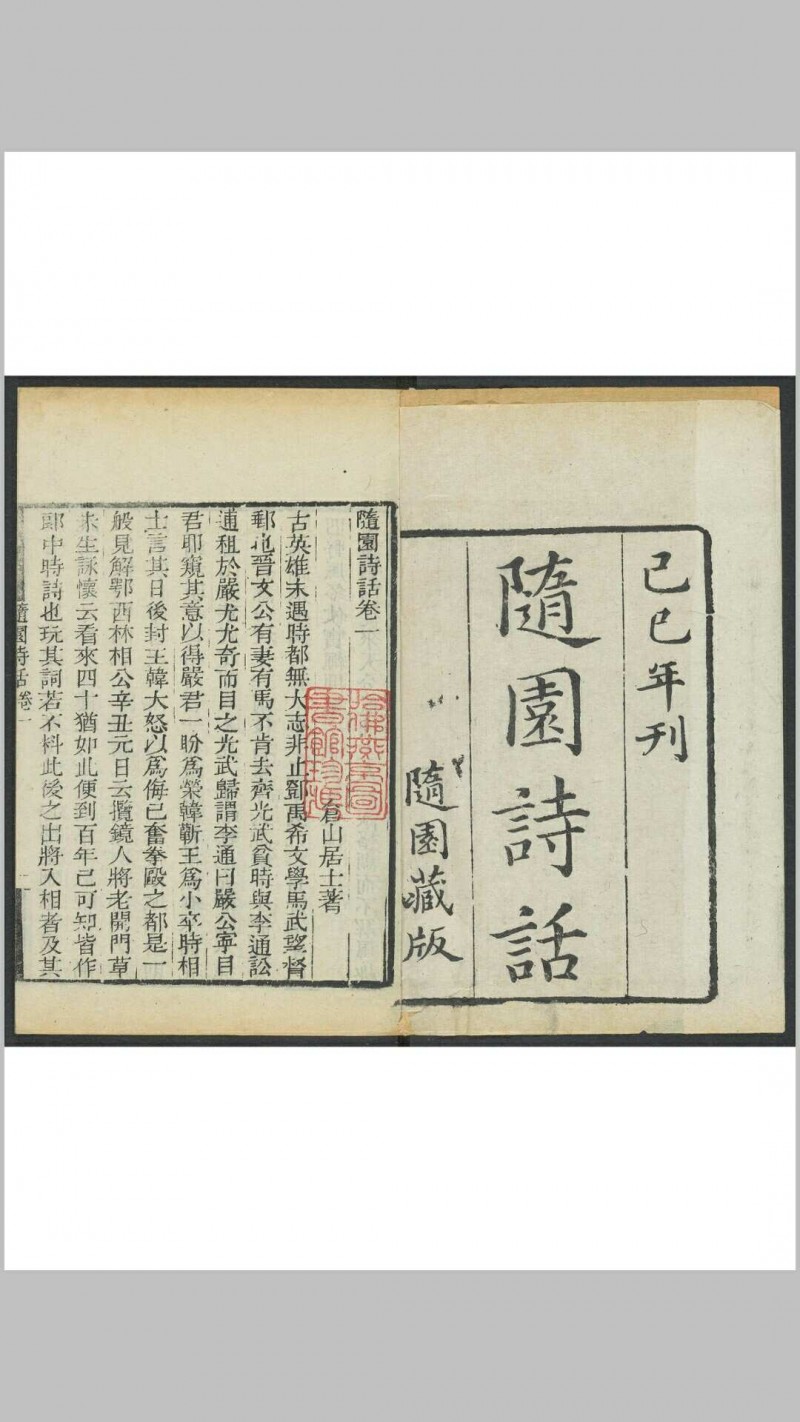 己巳年刊
隨園詩話
隨園藏版
隨園詩話卷一
倉山居士著
古英雄未遇時都無大志非止鄧禹希文學馬武望督
郵也晉文公有妻有馬不肯去齊光武貧時與李通訟
逋租於嚴尤尤奇而目之光武歸謂李通曰嚴公寧目
君耶窺其意以得嚴君一盼為榮韓蘄王為小卒時相
士言其日後封王韓大怒以為侮己奮拳毆之都是一
般見解鄂西林相公辛丑元日云攬鏡人將老開門草
未生詠懷云看來四十猶如此便到百年已可知皆作
郎中時詩也玩其詞若不料此後之出將入相者及其
隨園詩話 卷一
哈佛燕京圖
書館珍藏